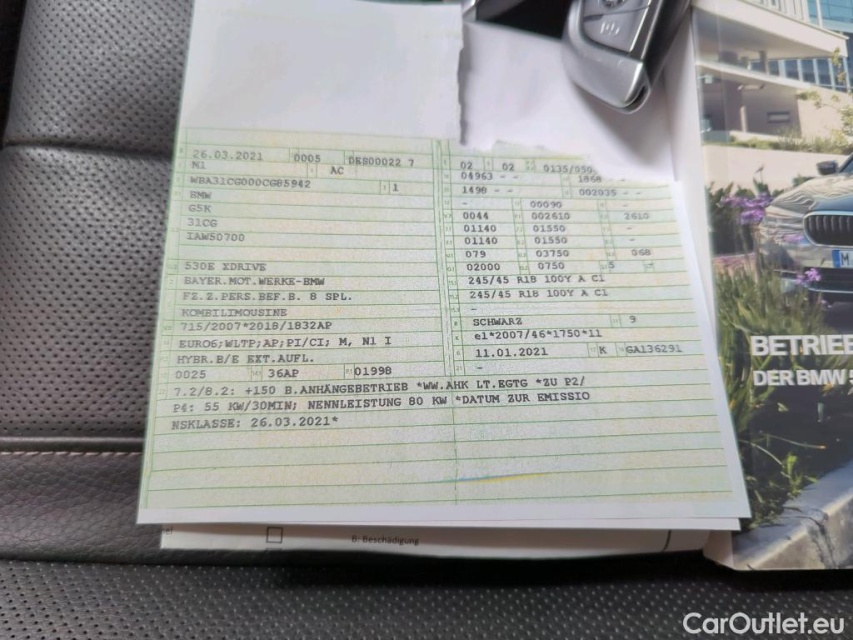 26.03.2021 0005 DKS00022 7
N1 AC
WBA31CG000CG85942 1
BMW
G5K
31CG
IAW50700
530E XDRIVE
BAYER.MOT.WERKE-BMW
FZ.Z.PERS.BEF.B. 8 SPL.
KOMBILIMOUSINE
715/2007*2018/1832AP
EURO6;WLTP;AP;PI/CI; M, N1 I
HYBR.B/E EXT.AUFL.
0025 36AP 01998
02 02 0135/050
04963 - - 1868
1498 - - 002035 - -
- 00090 - -
0044 002610 2610
01140 01550 -
01140 01550 -
079 03750 068
02000 0750 5 -
245/45 R18 100Y A C1
245/45 R18 100Y A C1
-
SCHWARZ 9
e1*2007/46*1750*11
11.01.2021 K GA136291
-
7.2/8.2: +150 B.ANHÄNGEBETRIEB *WW.AHK LT.EGTG *ZU P2/
P4: 55 KW/30MIN; NENNLEISTUNG 80 KW *DATUM ZUR EMISSIO
NSKLASSE: 26.03.2021*
B: Beschädigung
BETRIEB
DER BMW 5
CarOutlet.eu